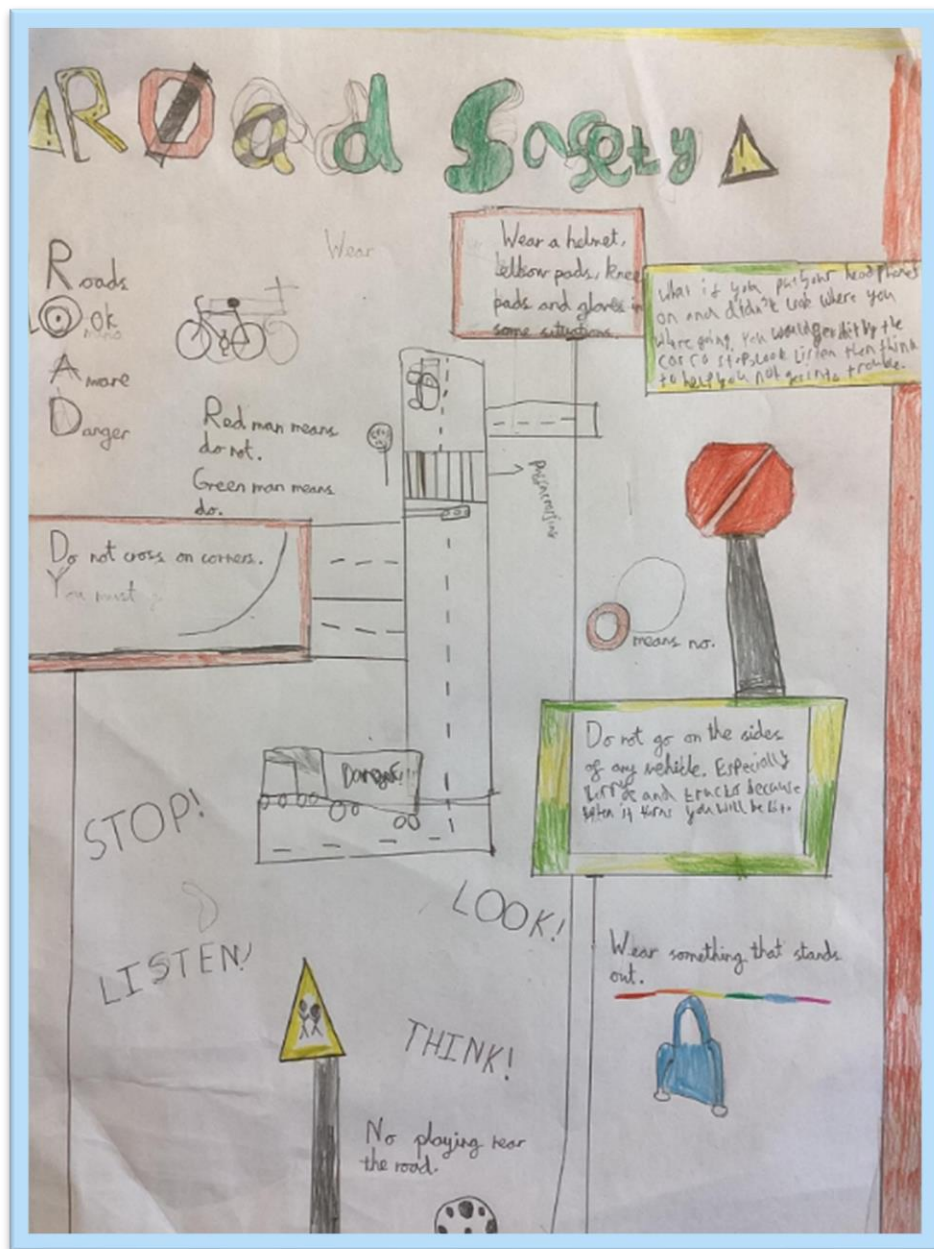 ROad Safety
Wear
Wear a helmet,
elbow pads, knee
pads and gloves in
some situations.
What if you put your headphones
on and didn't look where you
where going. You would get hit by the
car so stop Look Listen then think
to help you not get into trouble.
Roads
LOok
Aware
Danger
Red man means
do not.
Green man means
do.
Do not cross on corners.
You must
means no.
Do not go on the sides
of any vehicle. Especially
and trucks because
when it turns you will be hit.
Danger!
STOP!
LOOK!
LISTEN!
THINK!
Wear something that stands
out.
No playing near
the road.